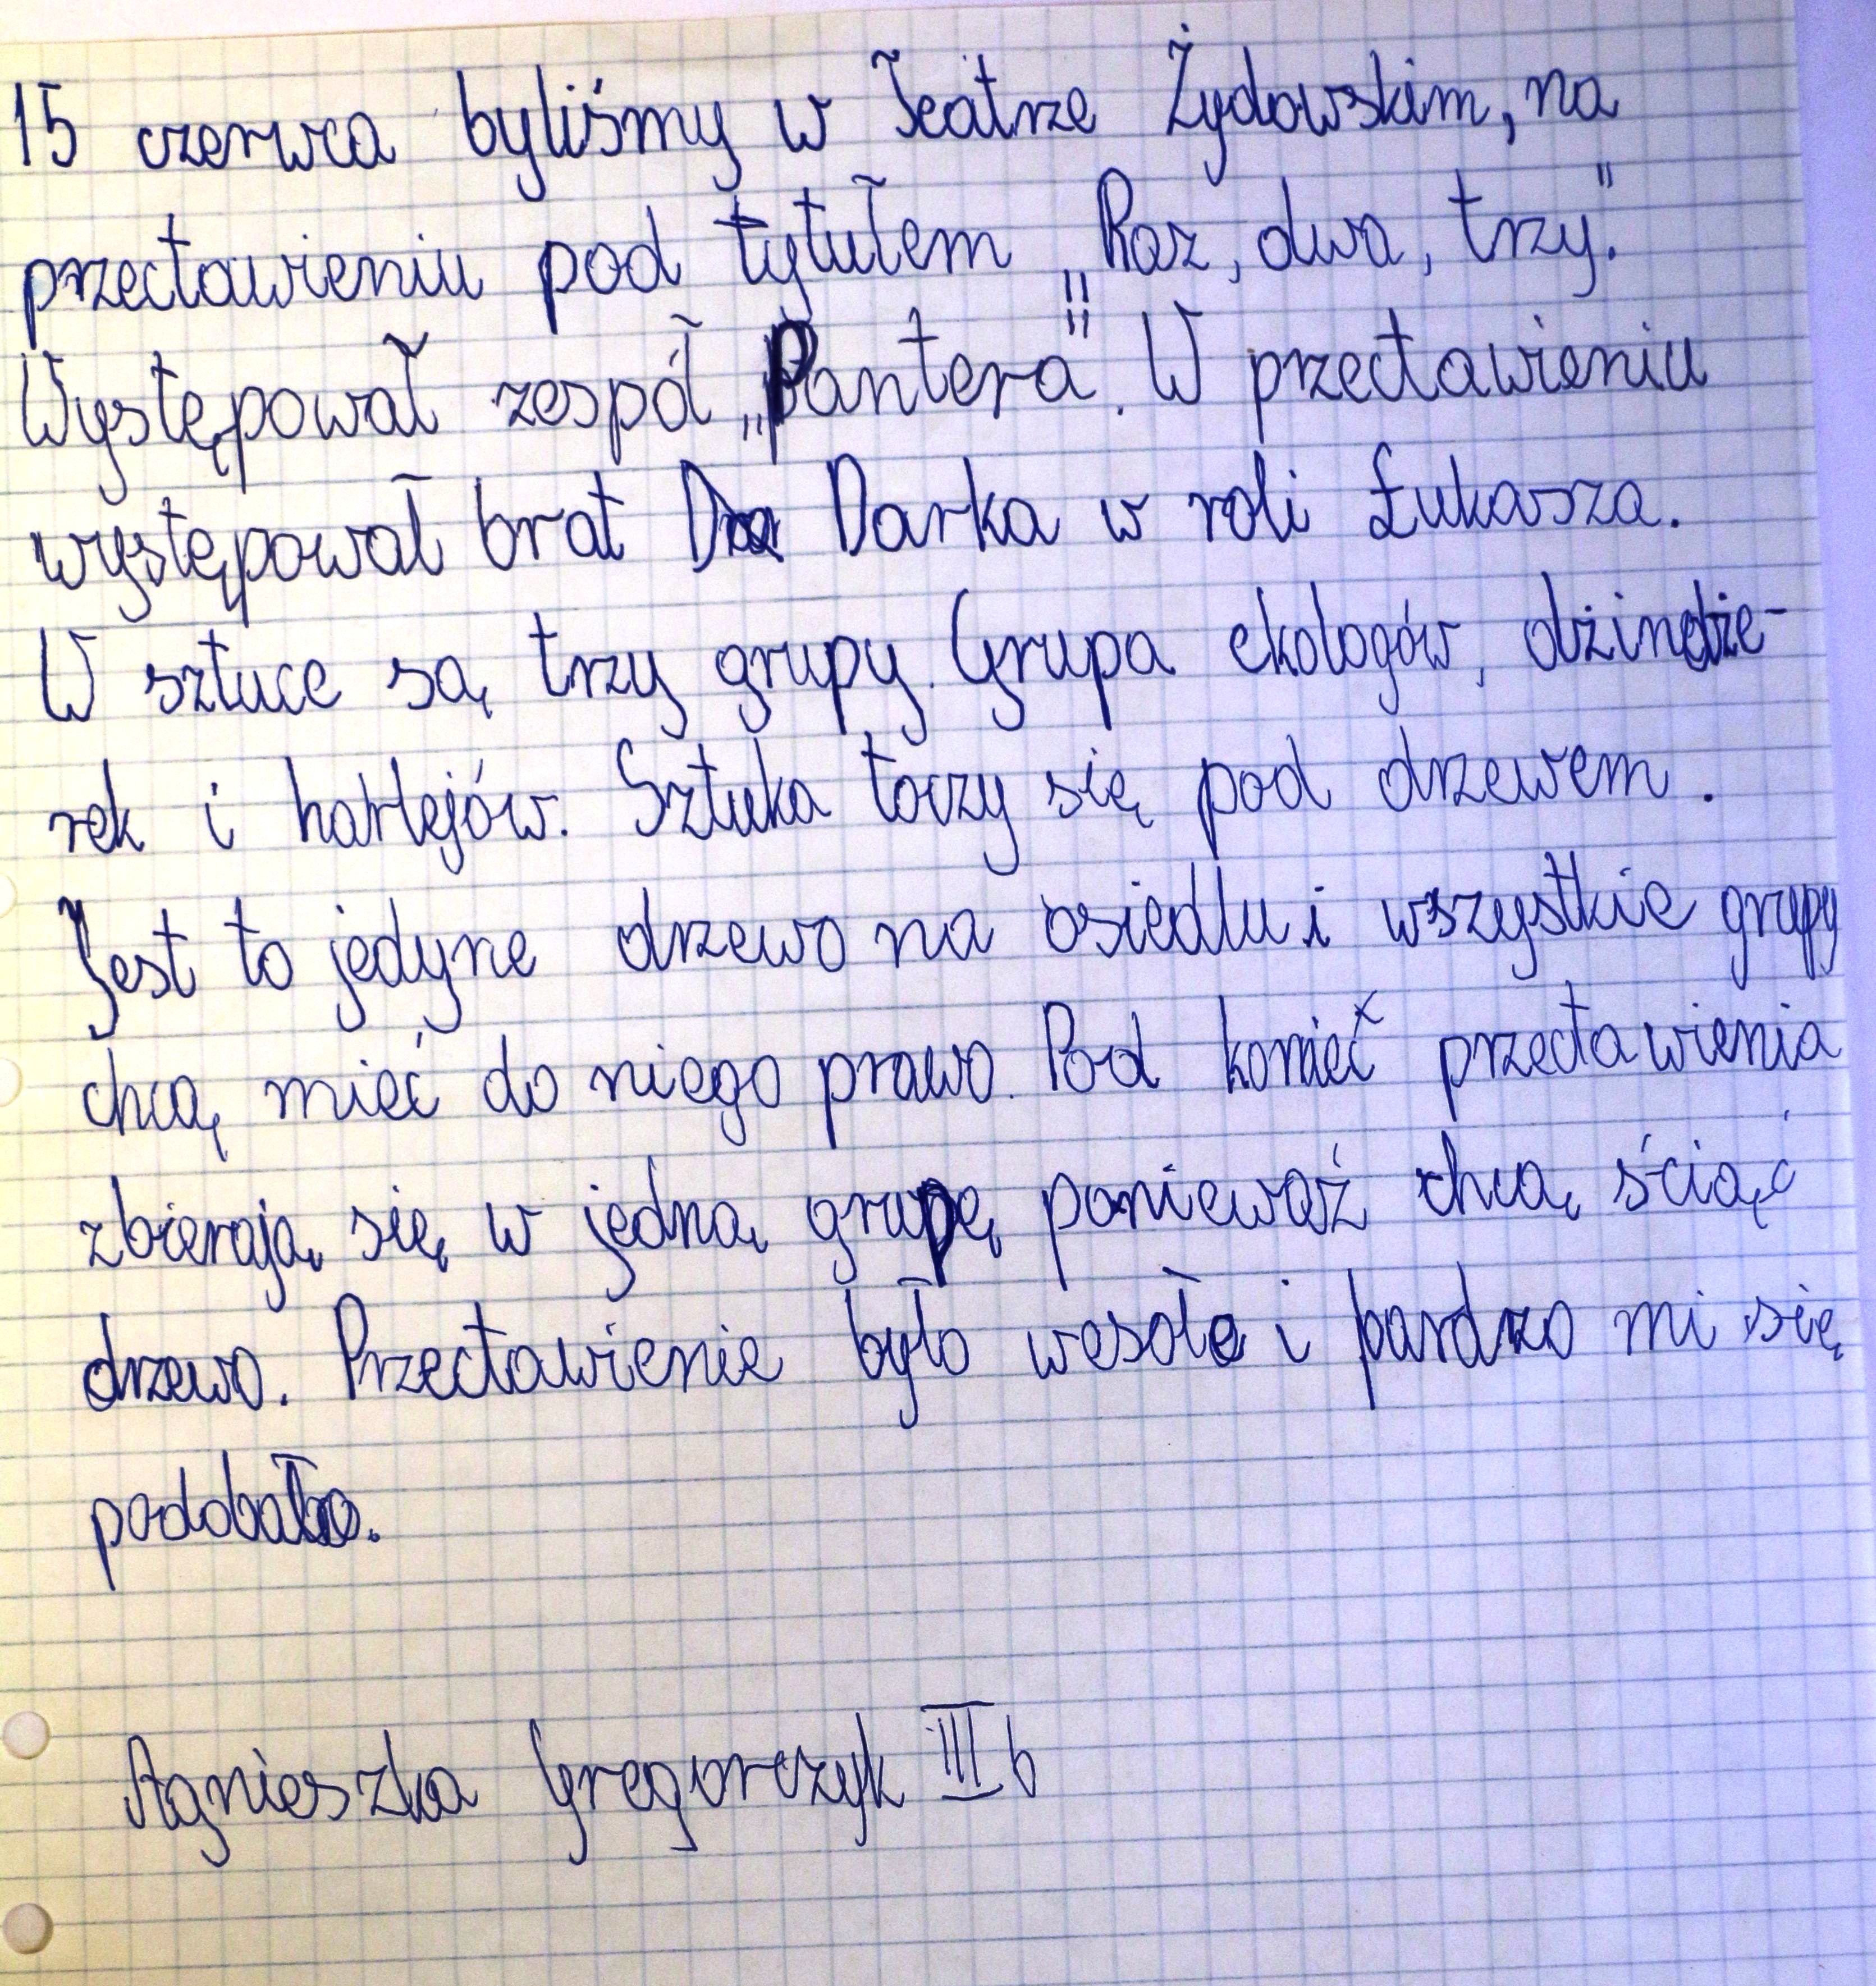 15 czerwca byliśmy w Teatrze Żydowskim, na
przectawieniu pod tytułem „Raz, dwa, trzy."
Występował zespół „Pantera". W przectawieniu
występował brat Darka w roli Łukasza.
W sztuce są trzy grupy. Grupa ekologów, dżindże-
rek i harlejów. Sztuka toczy się pod drzewem.
Jest to jedyne drzewo na osiedlu i wszystkie grupy
chcą mieć do niego prawo. Pod przectawienia
zbierają się w jedną grupę ponieważ chcą ściąć
drzewo. Przectawienie było wesołe i bardzo mi się
podobało.
Agnieszka Gregorczyk III b